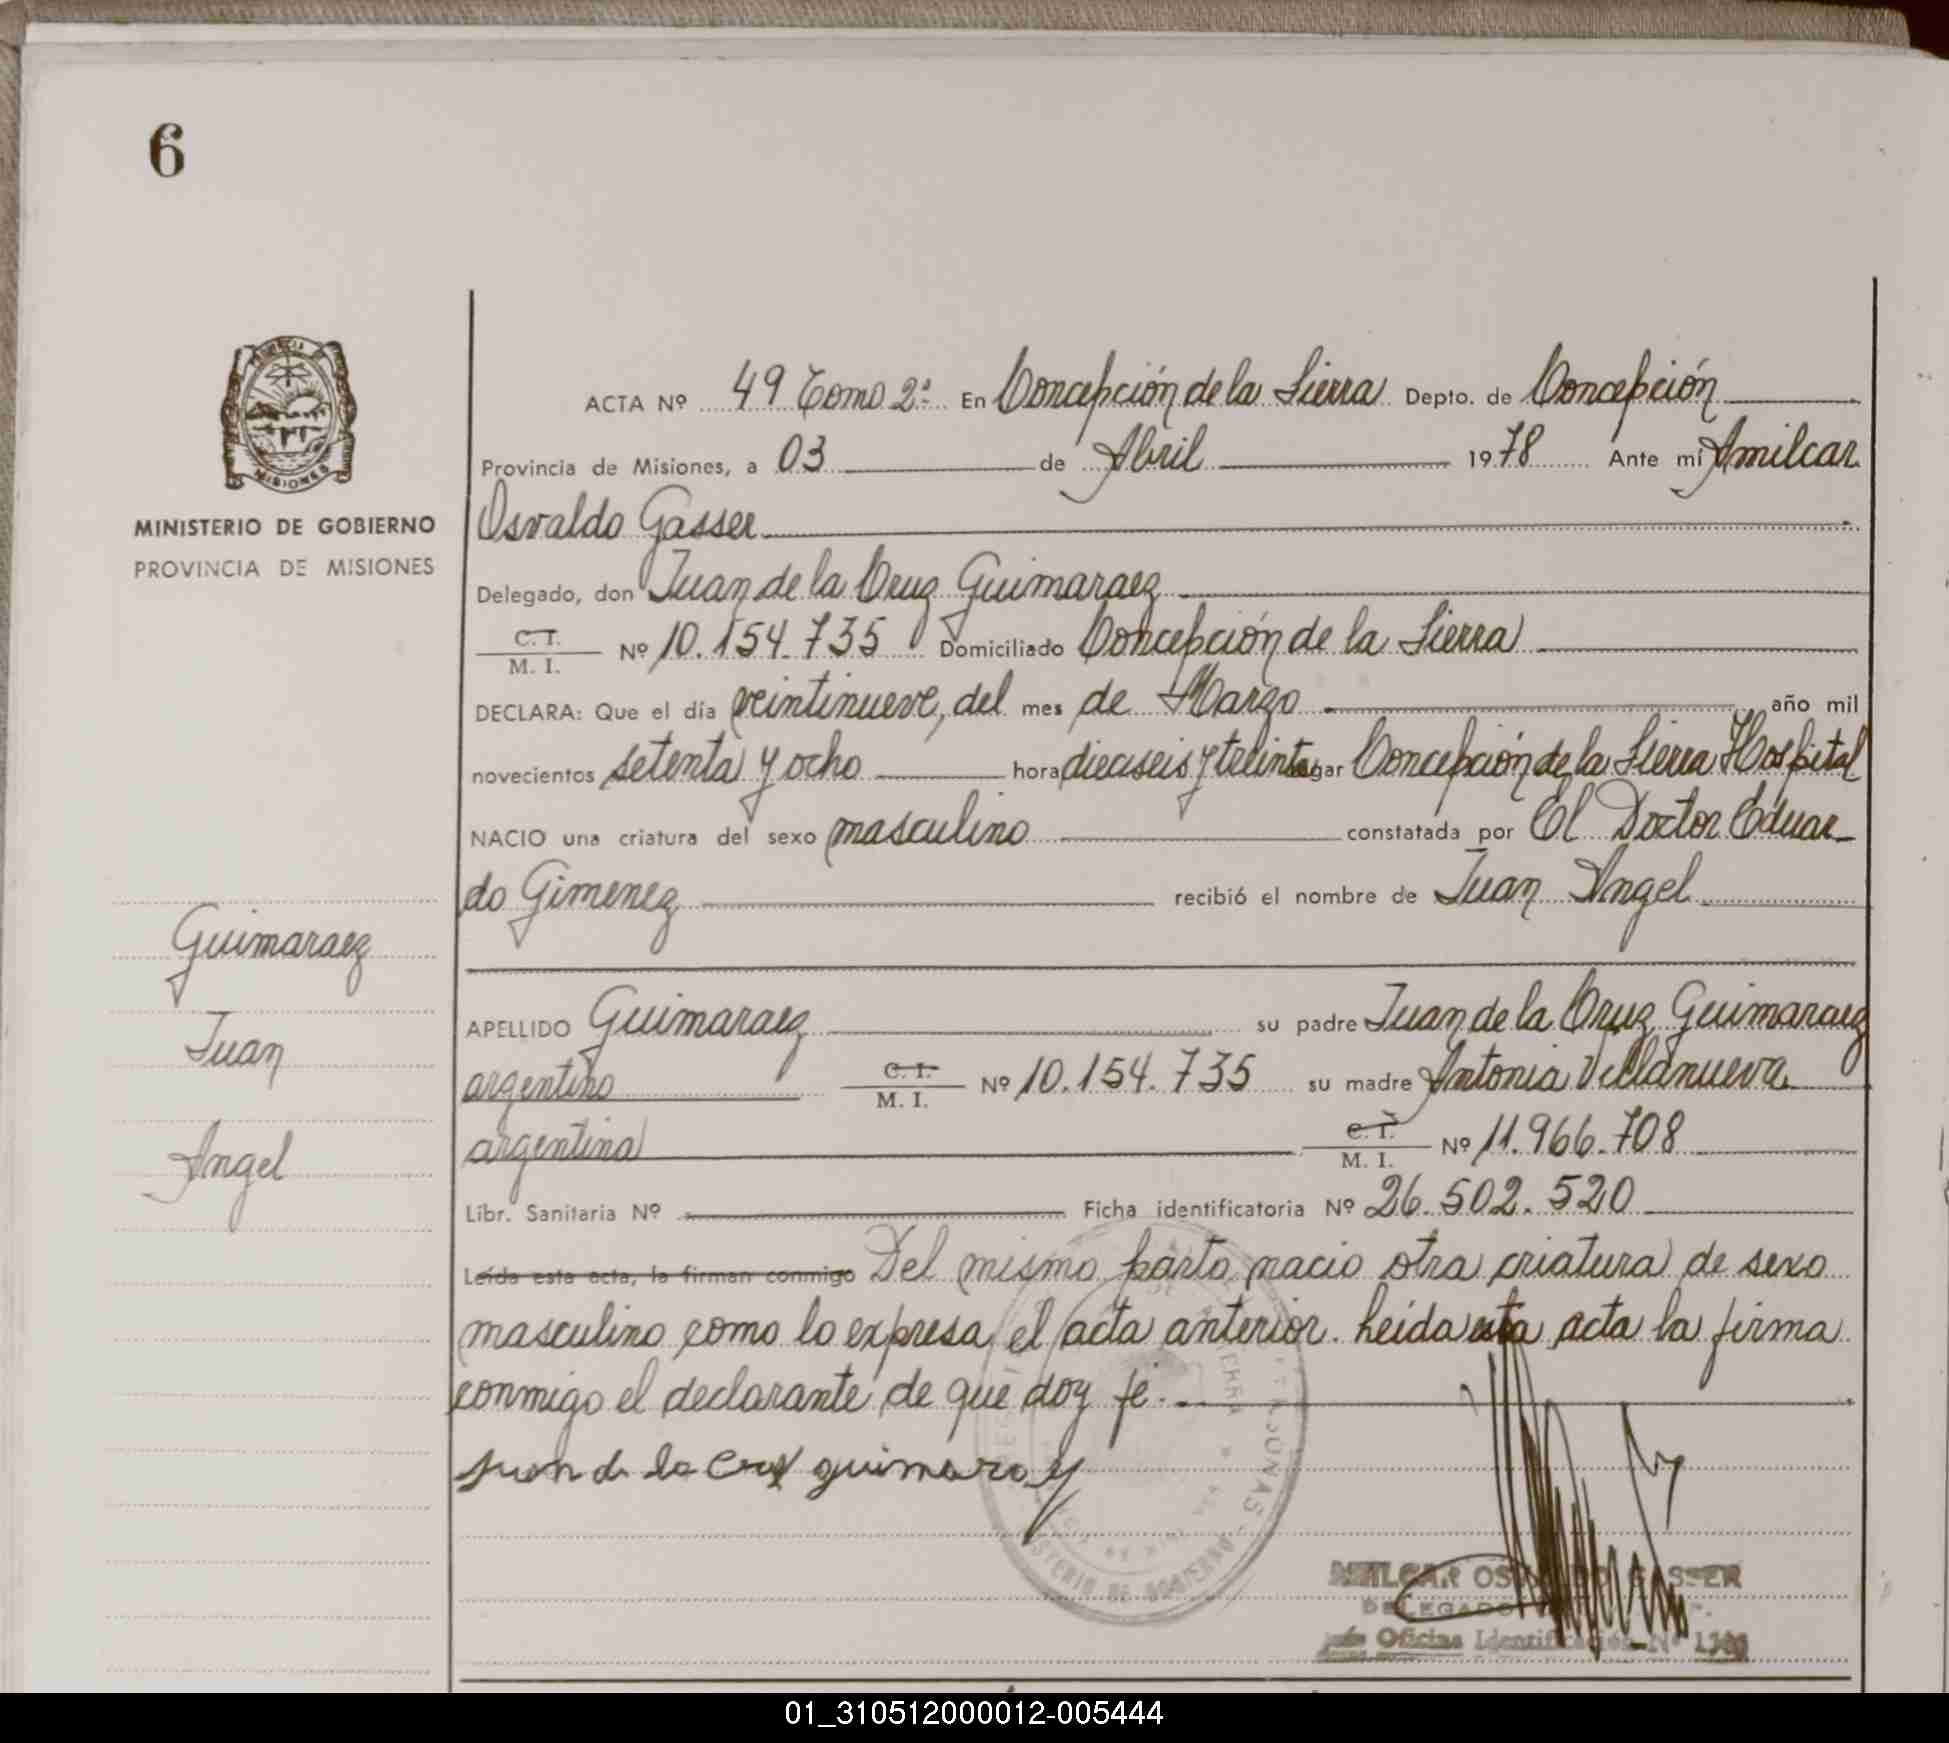 6
PROVINCIA DE
MISIONES
MINISTERIO DE GOBIERNO
PROVINCIA DE MISIONES
Guimaraez
Juan
Angel
ACTA Nº 49 Tomo 2º En Concepción de la Sierra Depto. de Concepción
Provincia de Misiones, a 03 de Abril 1978 Ante mí Amilcar
Osvaldo Gasser
Delegado, don Juan de la Cruz Guimaraez
C. I.
M. I. Nº 10.154.735 Domiciliado Concepción de la Sierra
DECLARA: Que el día veintinueve, del mes de Marzo año mil
novecientos setenta y ocho hora dieciseis y treinta lugar Concepción de la Sierra Hospital
NACIO una criatura del sexo masculino constatada por El Doctor Eduar-
do Gimenez recibió el nombre de Juan Angel
APELLIDO Guimaraez su padre Juan de la Cruz Guimaraez
argentino C. I.
M. I. Nº 10.154.735 su madre Antonia Villanueva
argentina C. I.
M. I. Nº 11.966.708
Libr. Sanitaria Nº Ficha identificatoria Nº 26.502.520
Leída esta acta, la firman conmigo Del mismo parto nacio otra criatura de sexo
masculino como lo expresa el acta anterior. Leída esta acta la firma
conmigo el declarante de que doy fé.
Juan de la Cruz guimaraez
AMILCAR OSVALDO GASSER
DELEGADO
Jefe Oficina Identificación Nº
MINISTERIO DE GOBIERNO
01_310512000012-005444